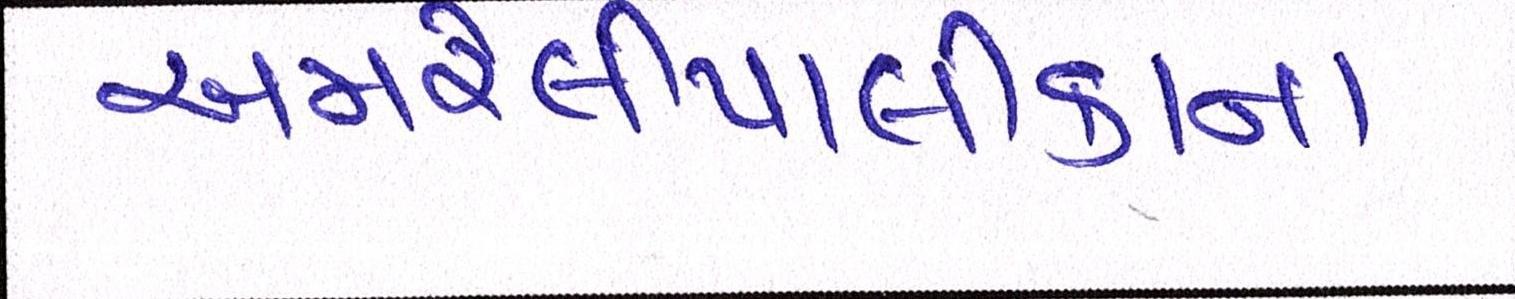 અમરેલીપાલીકાના